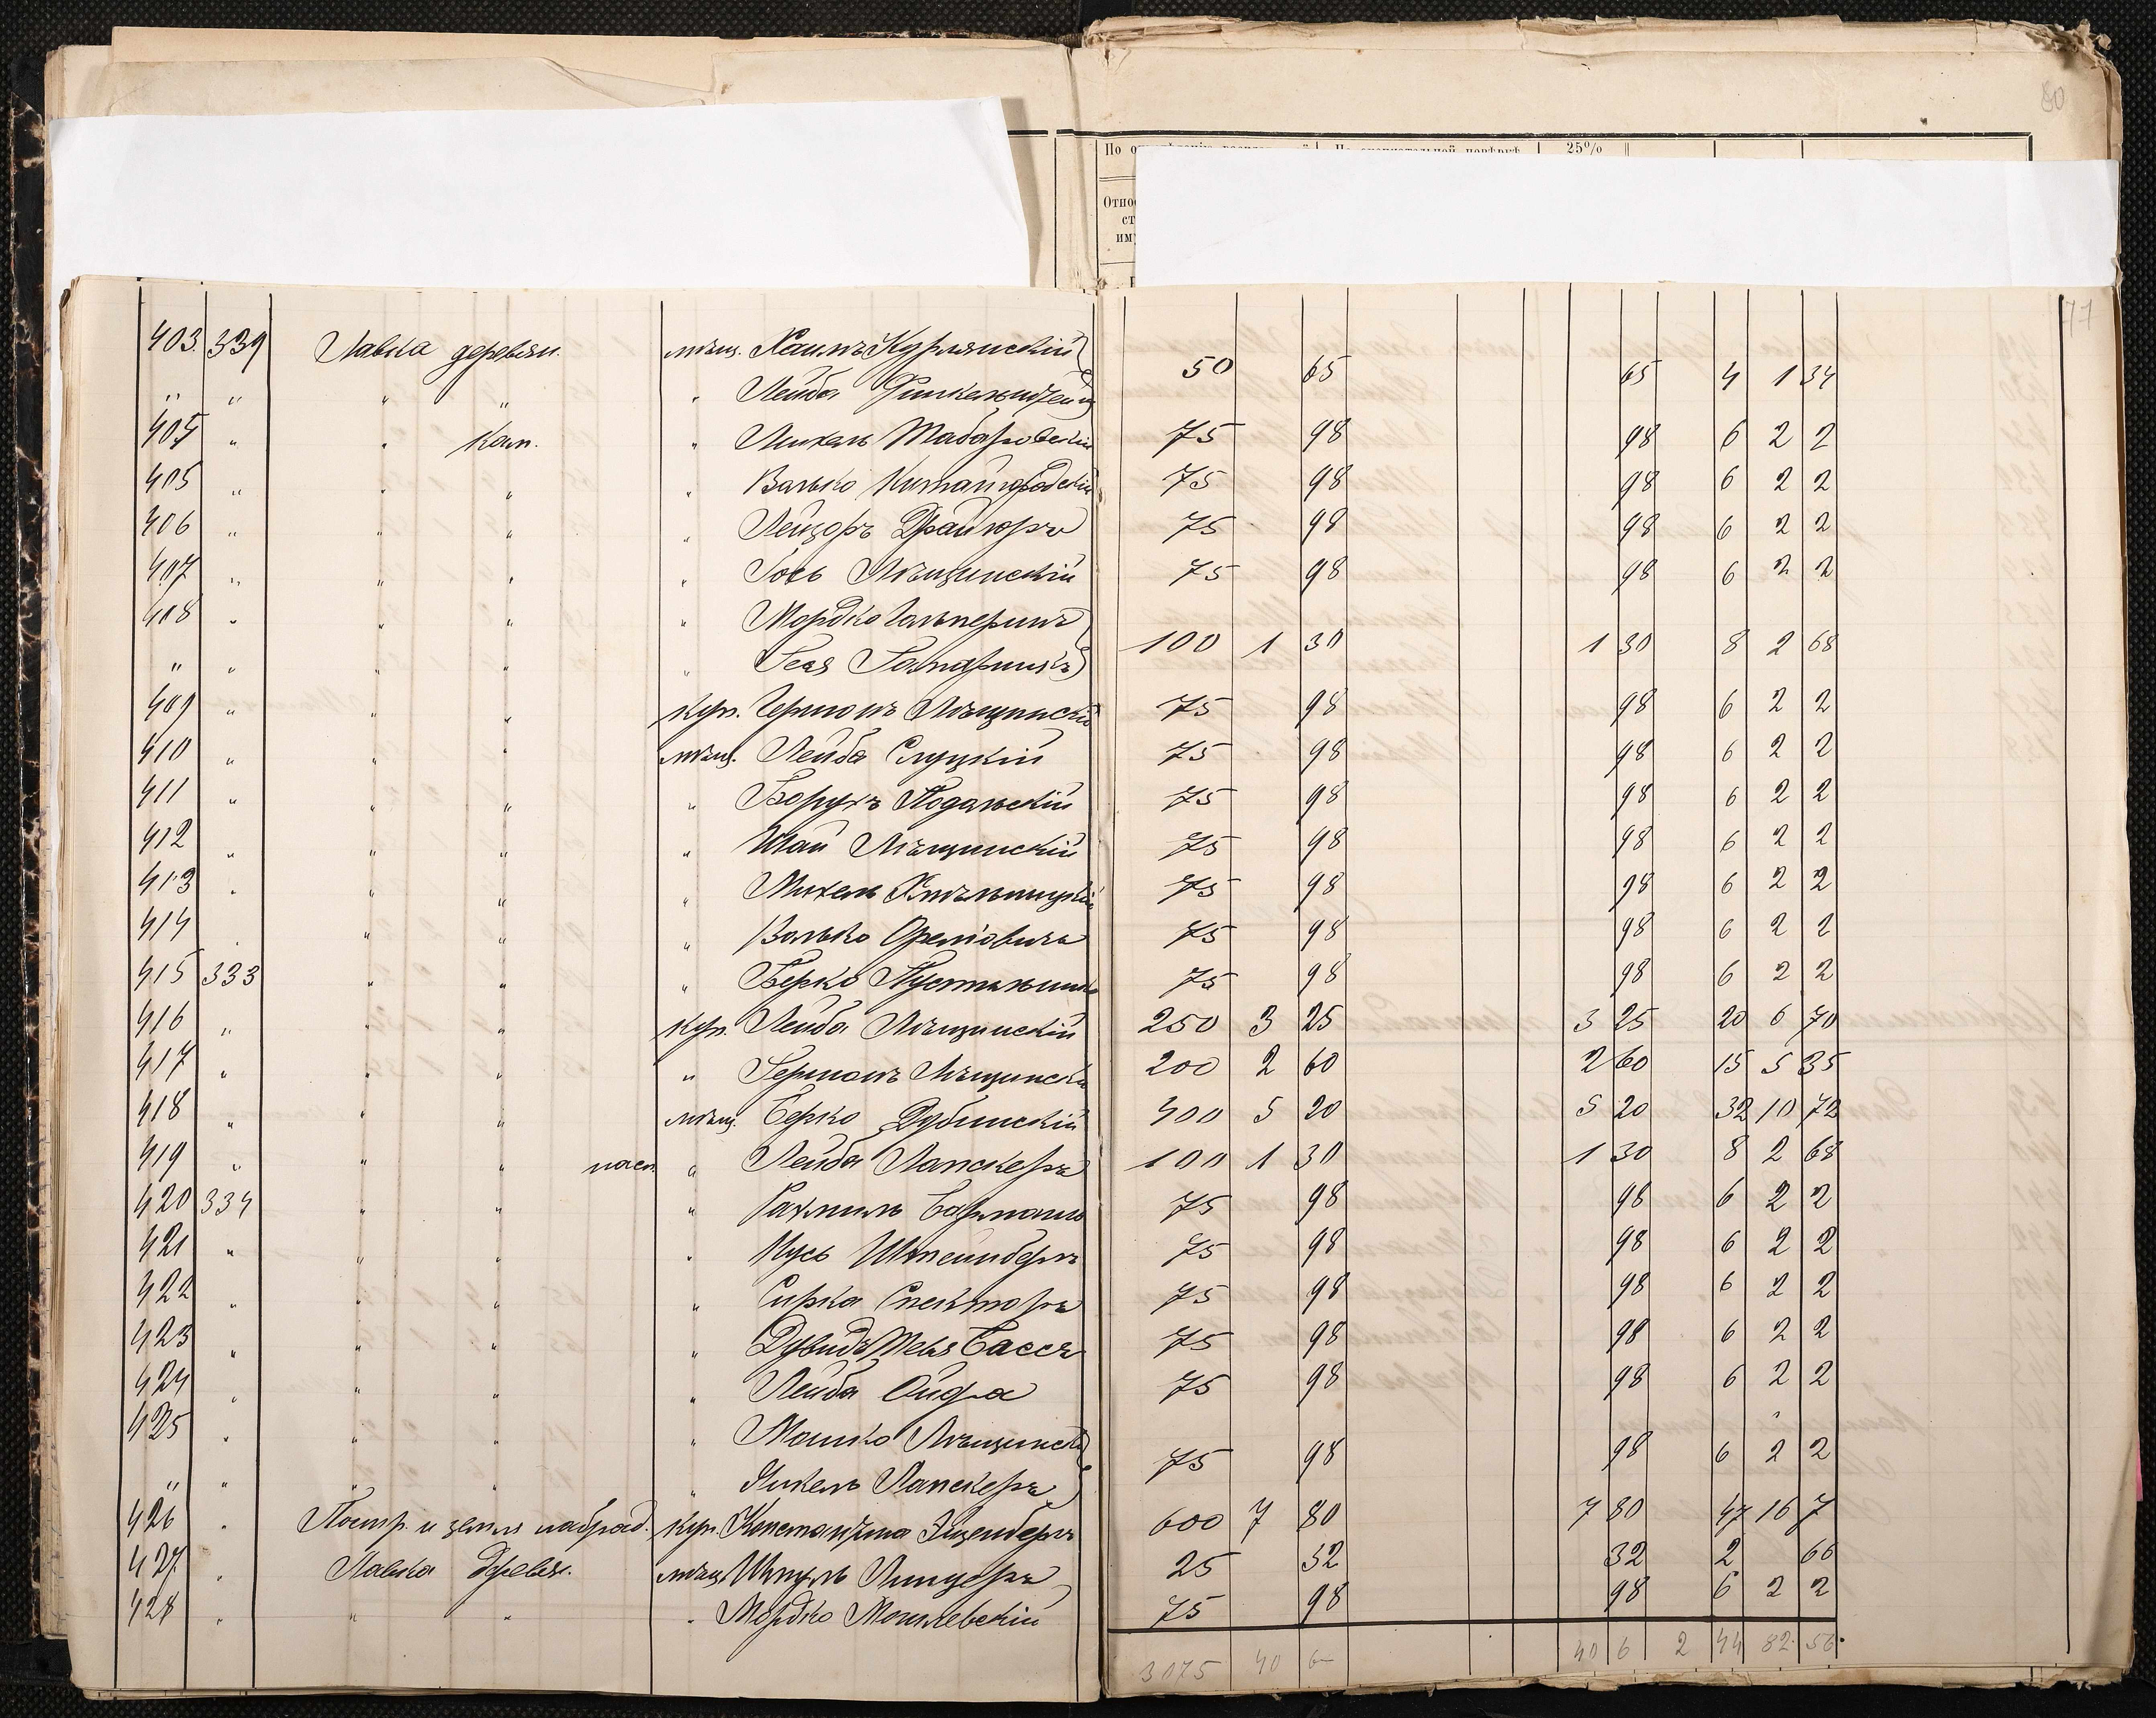 80
По о
25%
Отно
ст
им
71
403. 339 Лавка деревян. мѣщ. Хаимъ Курлянскій 50 65 65 4 1 34
" " " " " Лейба
404 " " Кам. " Михель 75 98 98 6 2 2
405 " " " " Валько Китайгородскій 75 98 98 6 2 2
406 " " " " Лейзоръ 75 98 98 6 2 2
407 " " " " Іось Лѣщинскій 75 98 98 6 2 2
408 " " " " Мордко Гальперинъ 100 1 30 1 30 8 2 68
" " " " "
409 " " " куп. Гершонъ Лѣщинскій 75 98 98 6 2 2
410 " " " мѣщ. Лейба Слуцкій 75 98 98 6 2 2
411 " " " " Борухъ Подольскій 75 98 98 6 2 2
412 " " " " Шай Лѣщинскій 75 98 98 6 2 2
413 " " " " Михель Хмѣльницкій 75 98 98 6 2 2
414 " " " " Волько 75 98 98 6 2 2
415 333 " " " Берко Пустыльник 75 98 98 6 2 2
416 " " " куп. Лейба Лѣщинскій 250 3 25 3 25 20 6 70
417 " " " " Гершонъ Лѣщинскій 200 2 60 2 60 15 5 35
418 " " " мѣщ. Берко Дубинскій 400 5 20 5 20 32 10 72
419 " " " насл. " Лейба Ланскеръ 100 1 30 1 30 8 2 68
420 334 " " " Рахмиль 75 98 98 6 2 2
421 " " " " Нусь Штейнбергъ 75 98 98 6 2 2
422 " " " " Сирка Спекторъ 75 98 98 6 2 2
423 " " " " Дувидъ Шевл Бассъ 75 98 98 6 2 2
424 " " " " Лейба 75 98 98 6 2 2
425 " " " " Мошко Лѣщинскій 75 98 98 6 2 2
" " " " " Ланскеръ
426 " Постр. и земля куп. Константина 600 7 80 7 80 47 16 7
427 " Лавка деревян. мѣщ. Шмуль 25 32 32 2 66
428 " " " " Мордко Могилевскій 75 98 98 6 2 2
3075 40 6 40 6 2 44 82 56